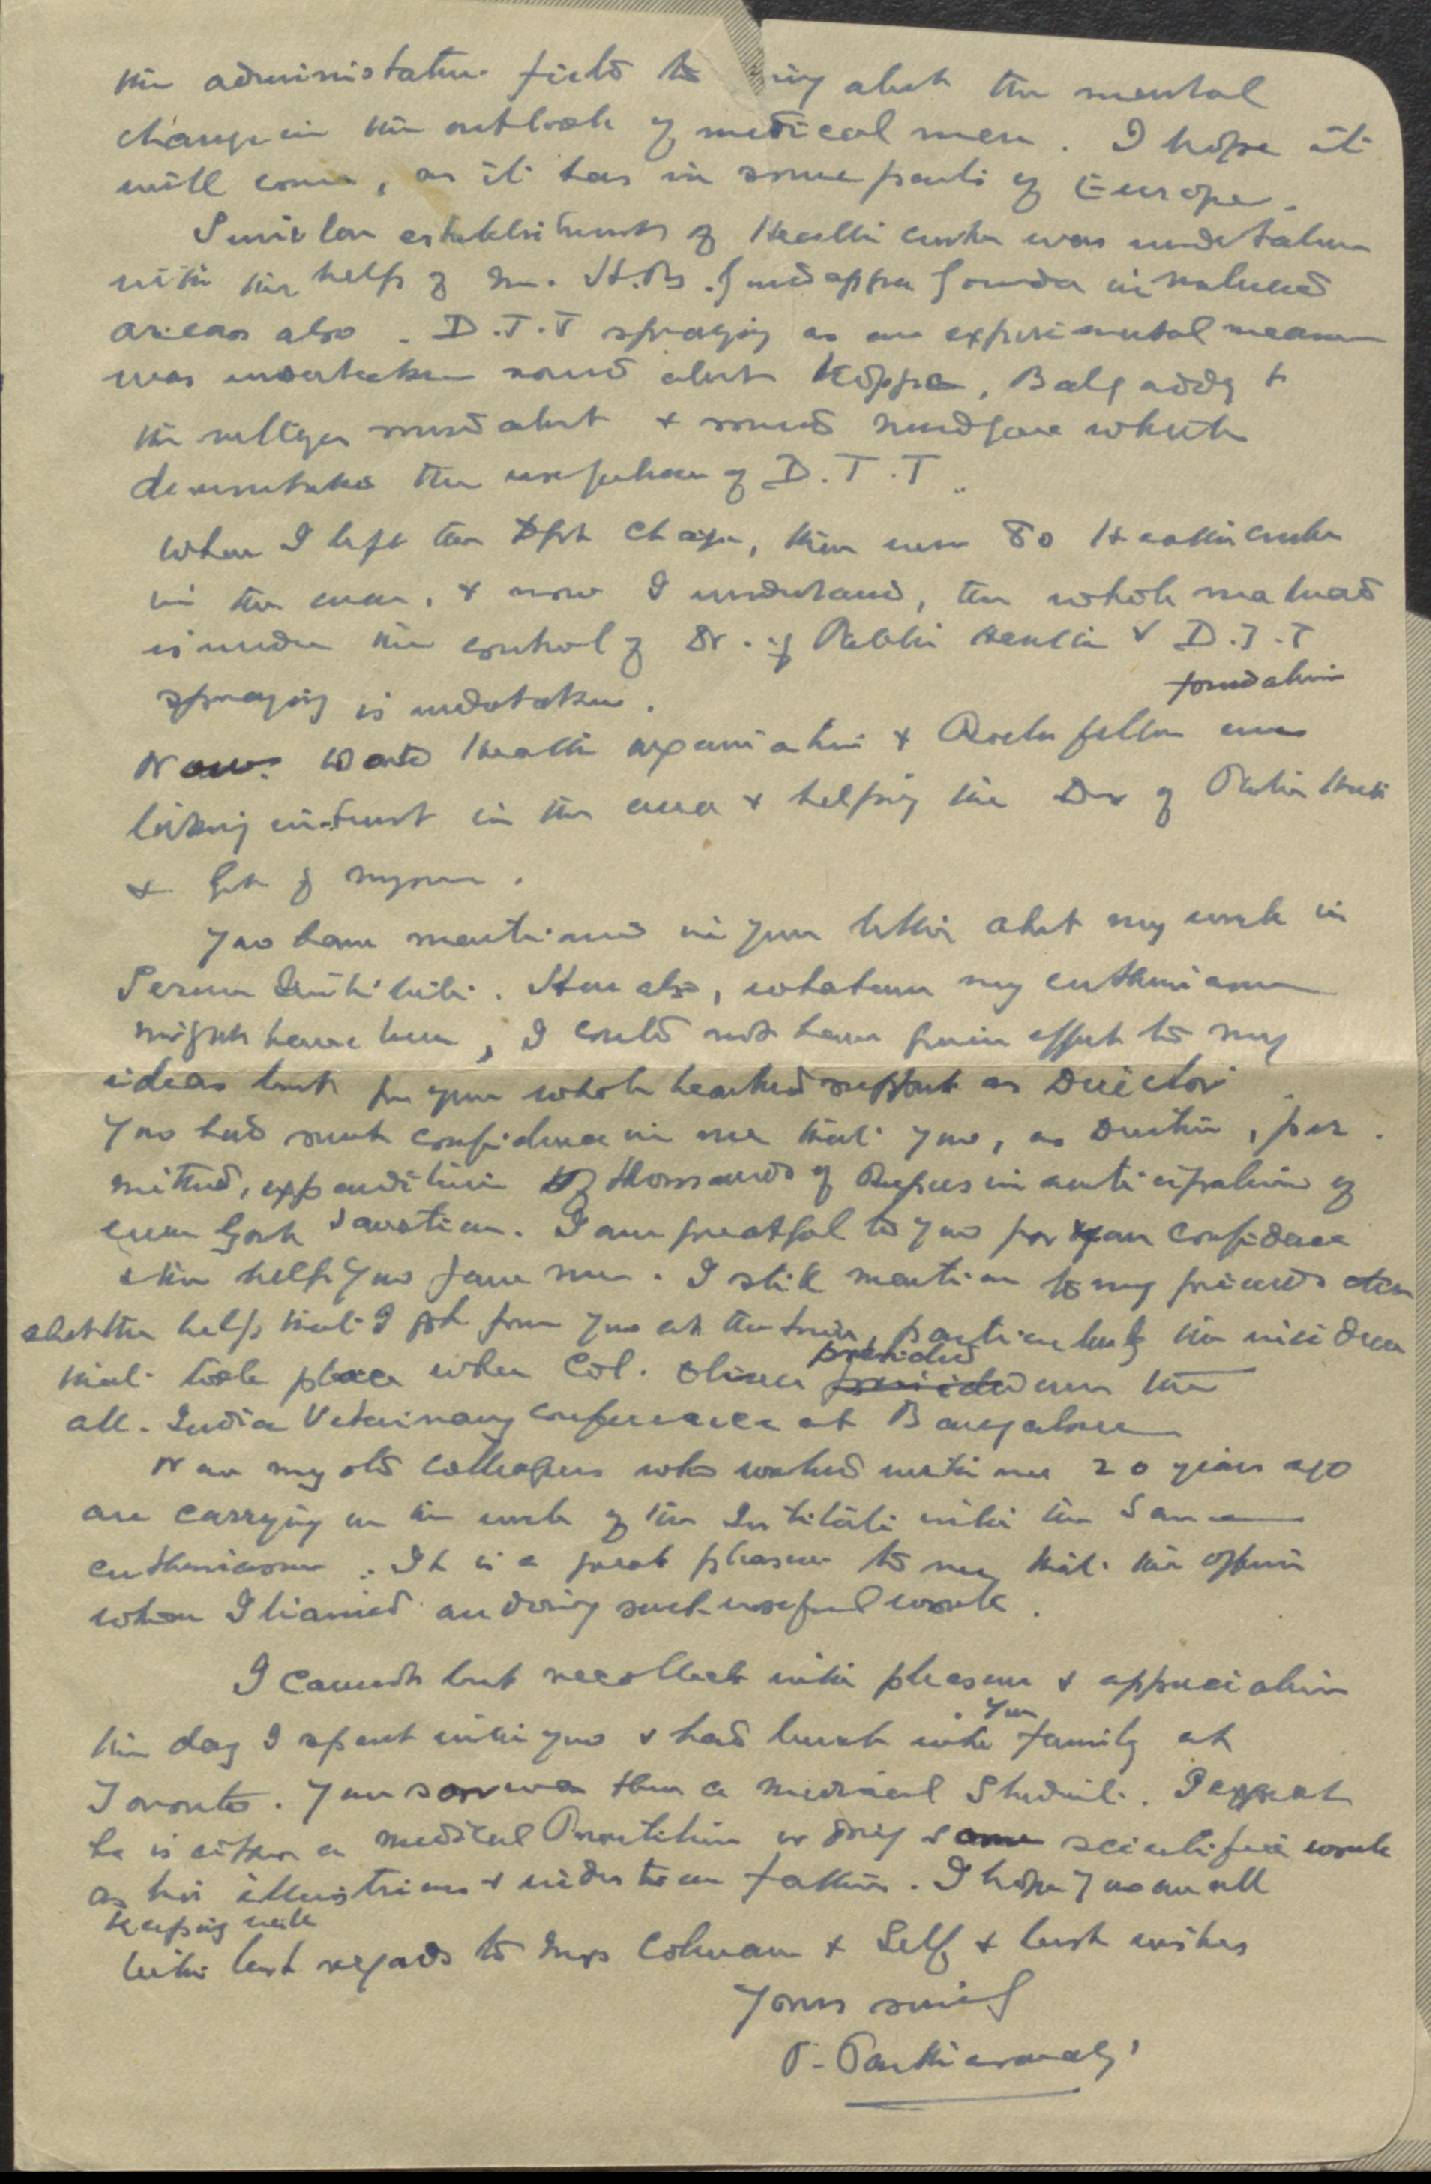 the administative field to ing abt the mental
change in the outlook of medical men. I hope it
will come, as it has in some parts of Europe.
Similar establishments of Health Center was undertaken
with the help of Mr. H.B. Gundappa Gowda in malnad
areas also. D.T.T spraying as an experimental measure
was undertaken round abt Koppa, Balgaddy &
the villages round abt & round Mudgere which
demonstrates the usefulness of D.T.T.
When I left the Dept charge, there were 80 Health centers
in the area, & now I understand, the whole malnad
is under the control of Dr. of Public Health & D.T.T
spraying is undertaken.
Now World Health organisation & Rockefeller foundation are
taking interest in the area & helping the Dr of Public Health
& Govt of Mysore.
You have mentioned in your letter abt my work in
Serum Institute. Here also, whatever my enthusiasm
might have been, I could not have given effect to my
ideas but for your whole hearted support as Director.
You had such confidence in me that you, as Director, per-
mitted, expenditure of thousands of Rupees in anticipation of
even Govt sanction. I am greatful to you for your confidence
& the help you gave me. I still mention to my friends often
abt the help that I got from you at the time, particularly the incidence
that took place when Col. Oliver presided over the
all-India Veterinary conference at Bangalore
Now my old colleagues who worked with me 20 years ago
are carrying on the work of the Institute with the same
enthusiasm. It is a great pleasure to me that the officers
whom I trained are doing such useful work.
I cannot but recollect with pleasure & appreciation
the day I spent with you & had lunch with your family at
Toronto. Your son was then a medical Student. I expect
he is either a medical Practitioner or doing some scientific work
as his illustrious & industrious father. I hope you are all
keeping well
With best regards to Mrs Coleman & Self & best wishes
Yours sincly